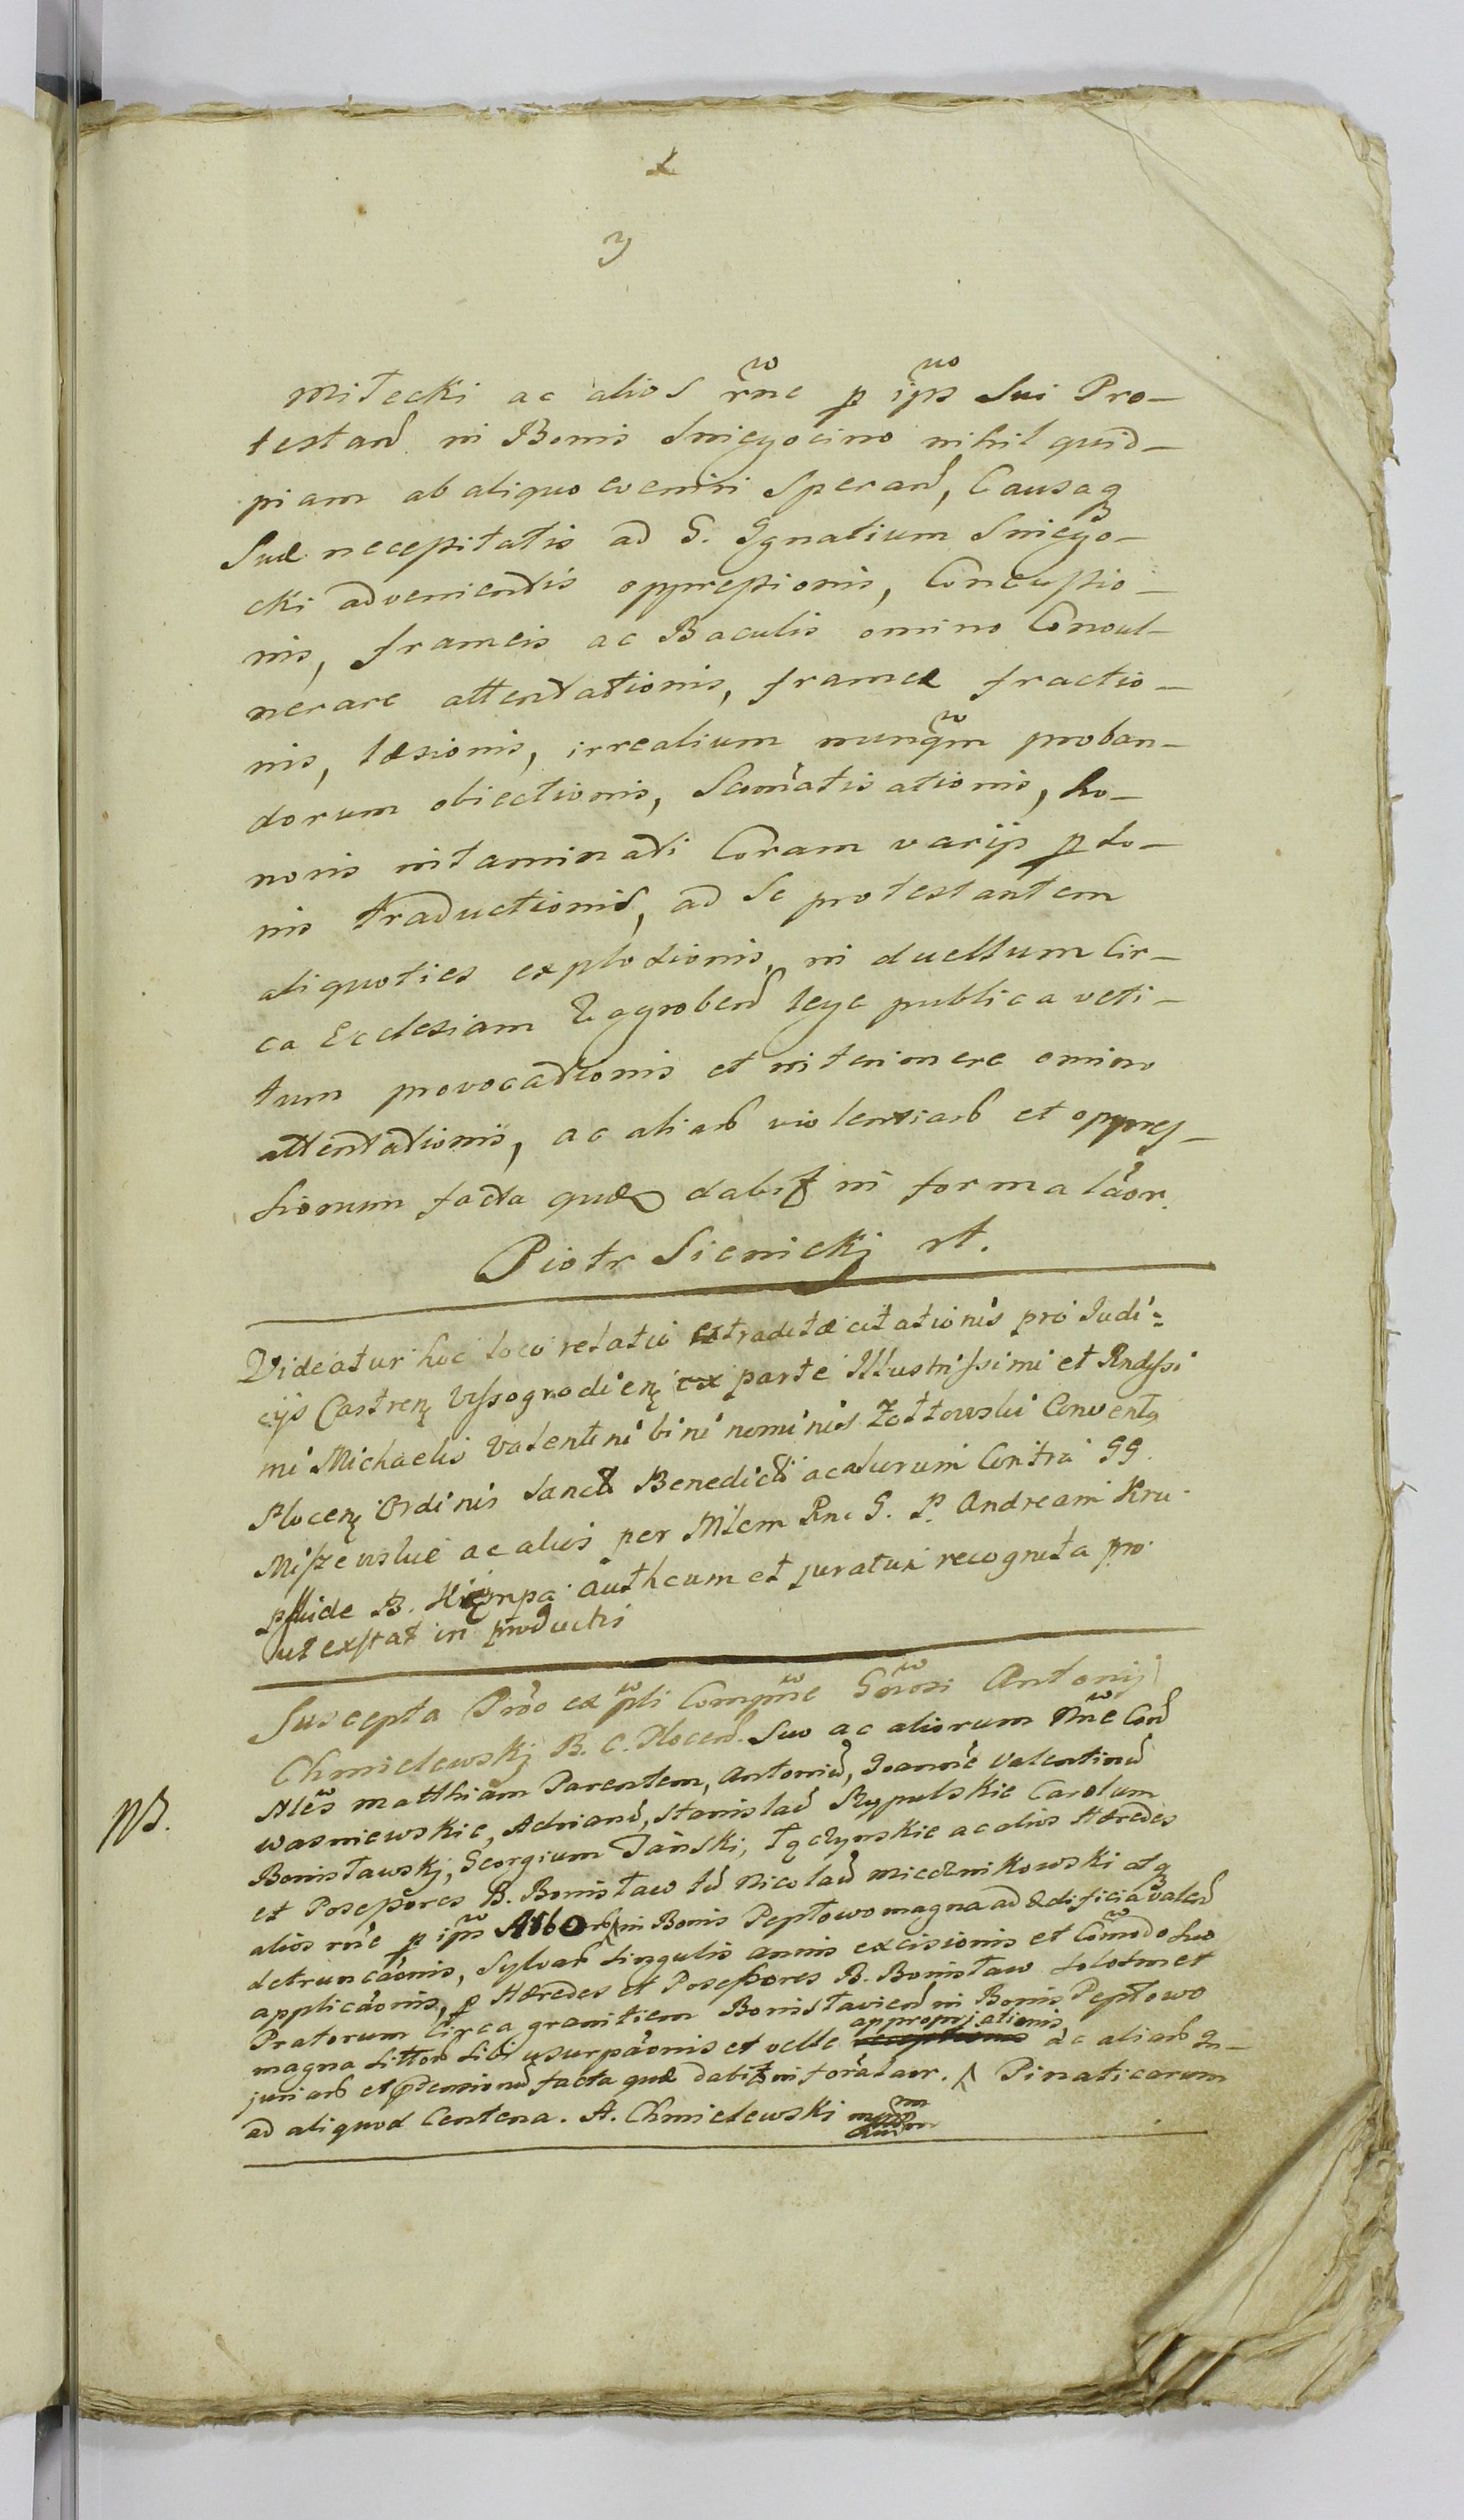 3
Miłecki ac alios rñe p ips Sui Pro-
testand in Bonis Sniegocino nihil quid-
piam ab aliquo eveniri Sperand, Causaq
Suæ necessitatis ad G. Ignatium Sniego-
cki advenientis oppressionis, Concussio-
nis, frameis ac Baculis omino Convul-
nerare attentationis, frameæ fractio-
nis, læsionis, irrealium nunqm proban-
dorum obiectionis, Scomatisationis, ho-
noris intaminati Coram varijs pso-
nis traductionis, ad Se protestantem
aliquoties explosionis, in duellum Cir-
ca Ecclesiam Zagrobend lege publica veti-
tum provocationis et interimere omino
attentationis, ac aliarb violentiarb et oppres-
sionum facta quæ dabit in forma laor.
Piotr Sienickj
Videatur hoc loco relatio extraditæ citationis pro Judi=
cijs Castren Vyssogrodien ex parte Illustrissimi et Rndissi
mi Michaelis Valentini bini nominis Zółtowski Conventq
Plocen Ordinis Sancti Benedicti ac aliorum Contra GG.
Miszewskie ac alios per Mlem Rne G. P. Andream Kru
pside B. Kiempa authcum et juratum recognita pro
ut exstat in productis
NB.
Suscepta Prõo ex pli Compne Gñrosi Antonij
Chmielewskj B. C. Plocen. Suo ac aliorum Rñe Cond
Nles Matthiam Parentem, Antoniũ, Joannẽ Valentinũ
Wasniewskie, Adrianũ, Stanislaũ Rypulskie Carolum
Bonisławskj, Georgium Tański, Łączynskie ac alios Hæredes
et Possessores B. Bonisław tũ Nicolaũ Miecznikowski atq
alios rñe p ipm Arborb in Bonis Pepłowo magna ad Ædificia valend
detruncãonis, Sylvarb singulis annis excisionis et Comodo Suo
applicãonis, p Hæredes et Possessores B. Bonisław
Pratorum Circa granitiem Bonisławiend in Bonis Pepłowo
magna Sittorb Sibi usurpãonis et velle appropriationis ac aliarb In-
juriarb et prensionũ facta quæ dabit in forã laor. Pinaticarum
ad aliquod Centena. A. Chmielewski